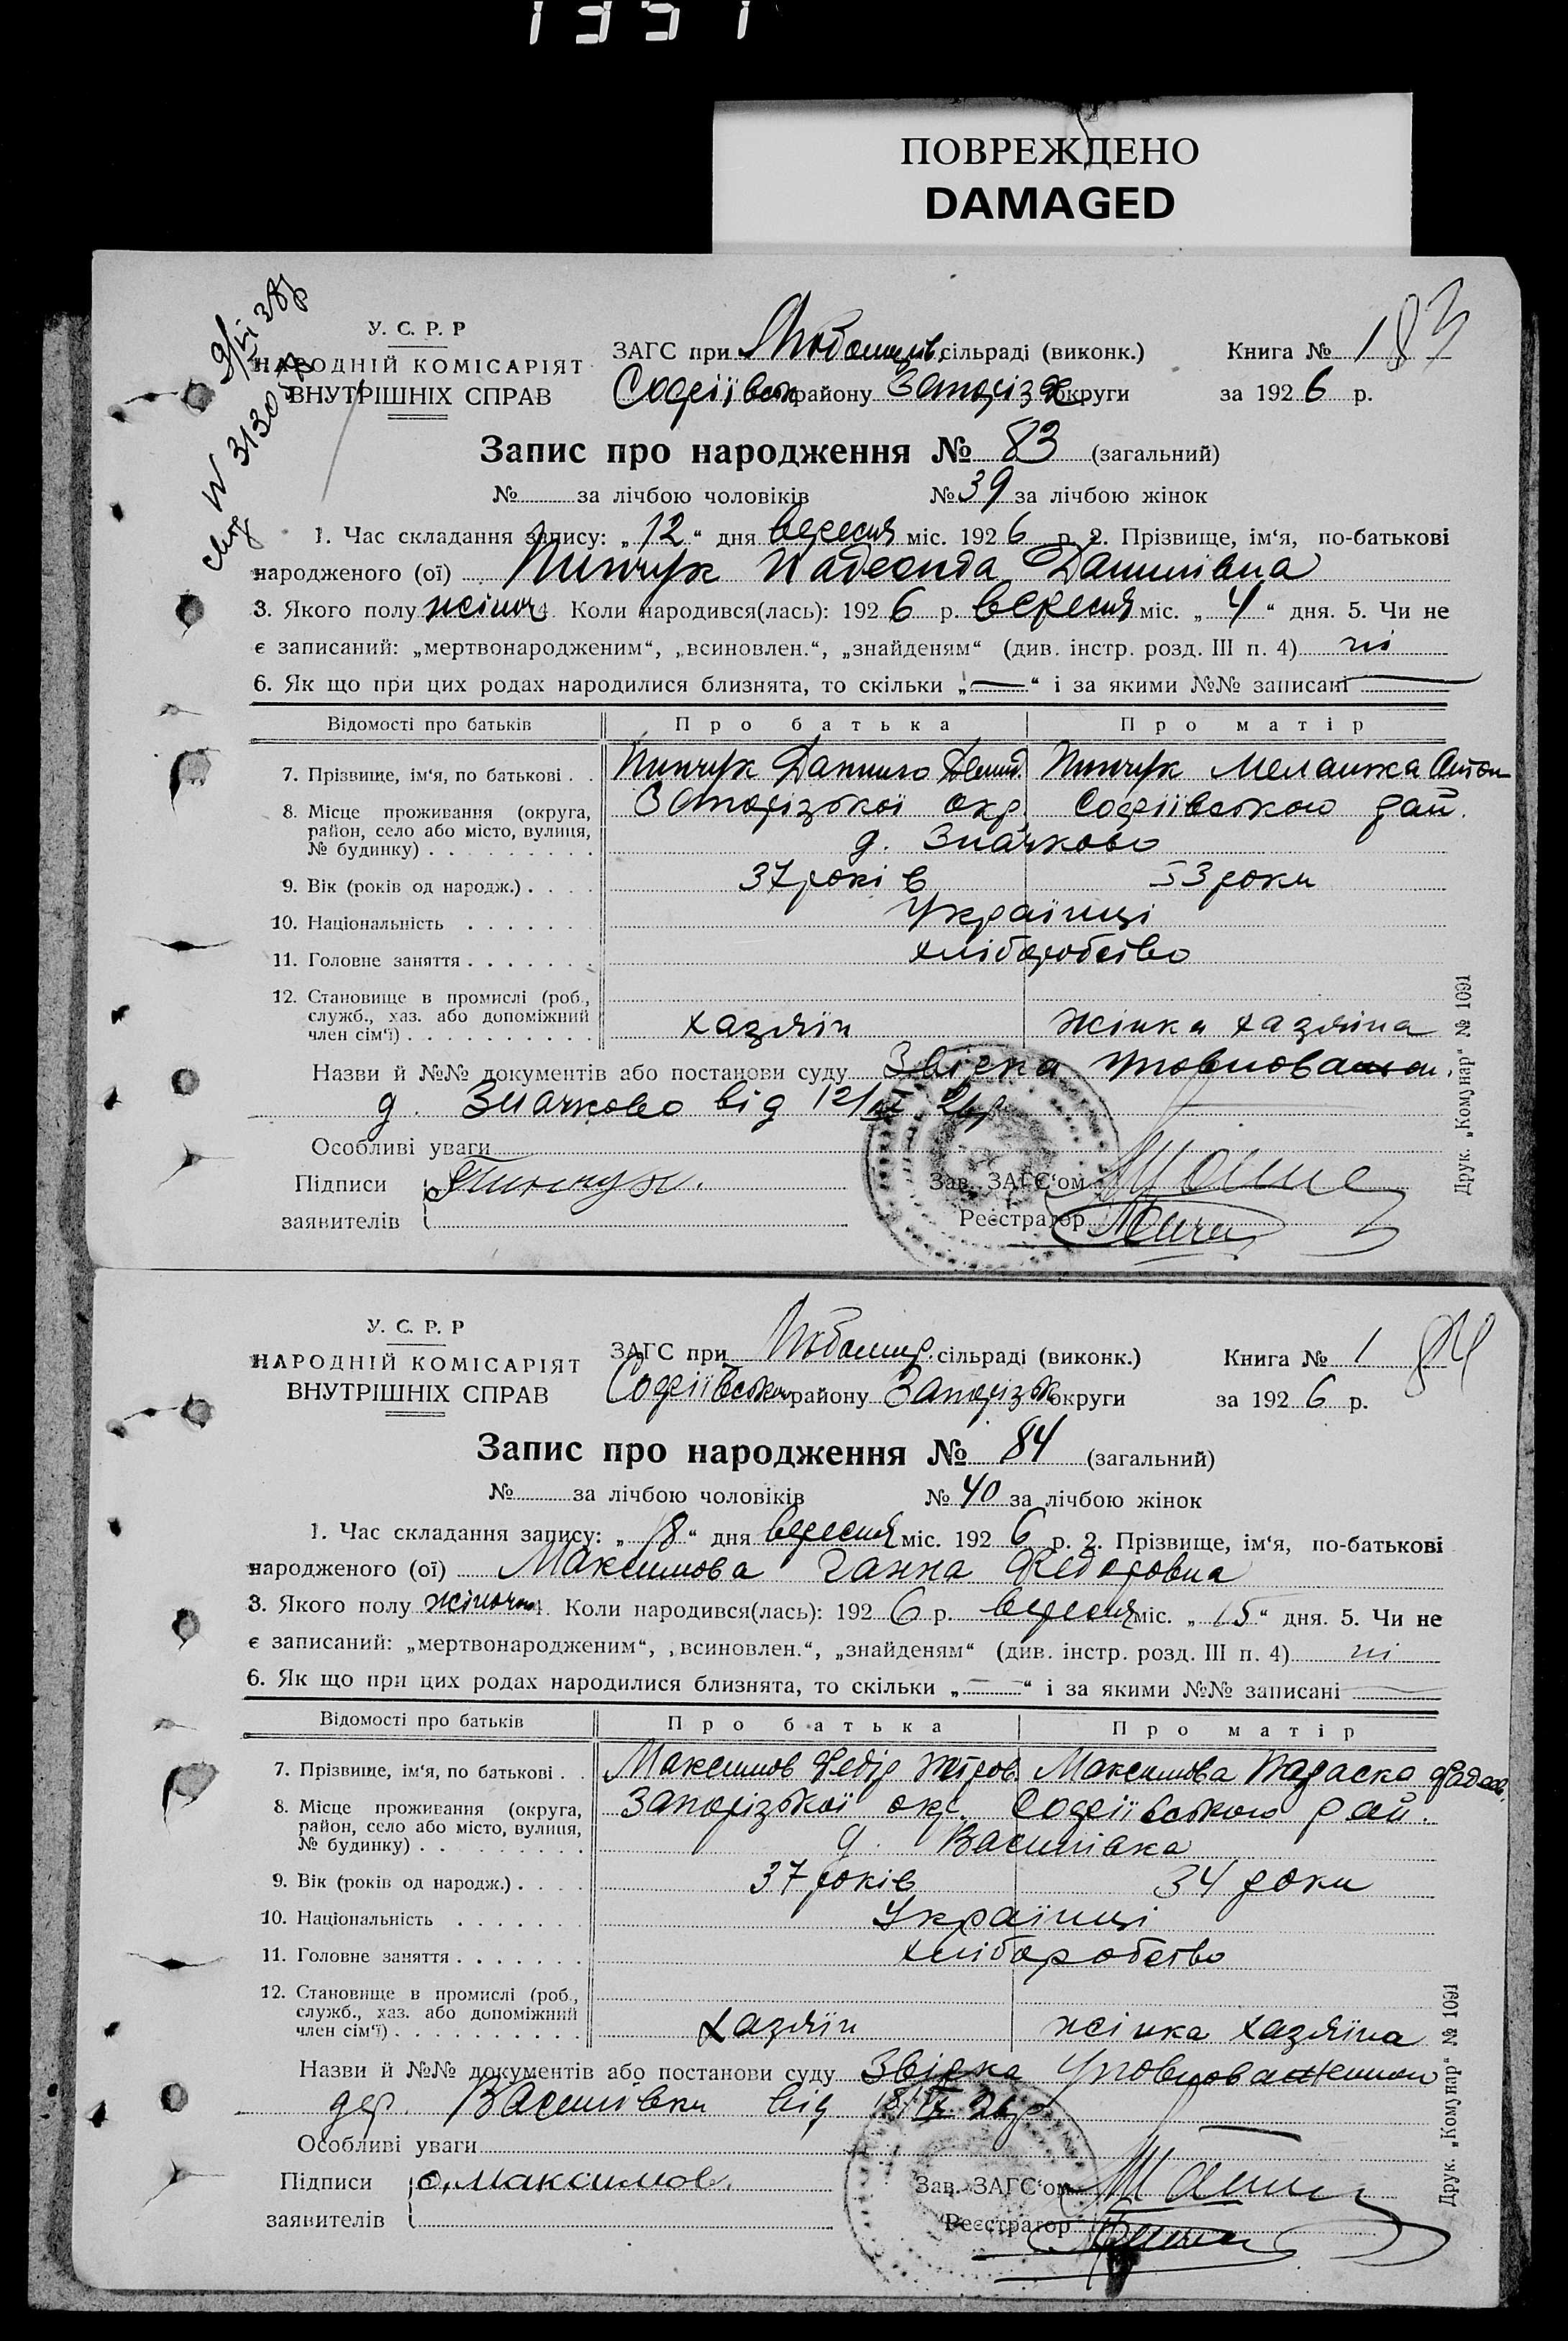 1351
ПОВРЕЖДЕНО
DAMAGED
У. С. Р. Р
НАРОДНІЙ КОМІСАРІЯТ
ВНУТРІШНІХ СПРАВ
ЗАГС при сільраді (виконк.) Книга № 1 83
Софіївськ району Запоріз округи за 1926 р.
Запис про народження № 83 (загальний)
№ за лічбою чоловіків № 39 за лічбою жінок
1. Час складання запису: „12“ дня вересня міс. 1926 р. 2. Прізвище, ім‘я, по-батькові
народженого (ої) Пинчук Надежда Данилівна
3. Якого полу жіноч 4. Коли народився(лась): 1926 р. вересня міс. „4“ дня. 5. Чи не
є записаний: „мертвонародженим“, „всиновлен.“, „знайденям“ (див. інстр. розд. III п. 4) ні
6. Як що при цих родах народилися близнята, то скільки „—“ і за якими №№ записані —
Відомості про батьків Про батька Про матір
7. Прізвище, ім‘я, по батькові . . Пинчук Данило Демид. Пинчук Меланка Антон
8. Місце проживання (округа, Запорізької окр. Софіївського рай.
район, село або місто, вулиця,
№ будинку) . . . . . . . . . д. Значково
9. Вік (років од народж.) . . . . 37 років 33 роки
10. Національність . . . . . . . Українці
11. Головне заняття . . . . . . . хліборобство
12. Становище в промислі (роб.,
служб., хаз. або допоміжний
член сім‘ї) . . . . . . . . . . хазяїн жінка хазяїна
Назви й №№ документів або постанови суду Звістка уповноважен.
д. Значково від 12/IX 26р
Особливі уваги
Підписи Пинчук. Зав. ЗАГС‘ом
заявителів Реєстратор
Друк. „Комунар“ № 1091
У. С. Р. Р
НАРОДНІЙ КОМІСАРІЯТ
ВНУТРІШНІХ СПРАВ
ЗАГС при сільраді (виконк.) Книга № 1 84
Софіївськ району Запорізьк округи за 1926 р.
Запис про народження № 84 (загальний)
№ за лічбою чоловіків № 40 за лічбою жінок
1. Час складання запису: „18“ дня вересня міс. 1926 р. 2. Прізвище, ім‘я, по-батькові
народженого (ої) Максимова Ганна Федоровна
3. Якого полу жіночо 4. Коли народився(лась): 1926 р. вересня міс. „15“ дня. 5. Чи не
є записаний: „мертвонародженим“, „всиновлен.“, „знайденям“ (див. інстр. розд. III п. 4) ні
6. Як що при цих родах народилися близнята, то скільки „—“ і за якими №№ записані —
Відомості про батьків Про батька Про матір
7. Прізвище, ім‘я, по батькові . . Максимов Федір Петров. Максимова Параска
8. Місце проживання (округа, Запорізької окр. Софіївського рай.
район, село або місто, вулиця,
№ будинку) . . . . . . . . . д. Василівка
9. Вік (років од народж.) . . . . 37 років 34 роки
10. Національність . . . . . . . Українці
11. Головне заняття . . . . . . . хліборобство
12. Становище в промислі (роб.,
служб., хаз. або допоміжний
член сім‘ї) . . . . . . . . . . хазяїн жінка хазяїна
Назви й №№ документів або постанови суду Звістка Уповноваженного
дер. Василівки від 18/IX 26р
Особливі уваги
Підписи Ф. Максимов. Зав. ЗАГС‘ом
заявителів Реєстратор
Друк. „Комунар“ № 1091